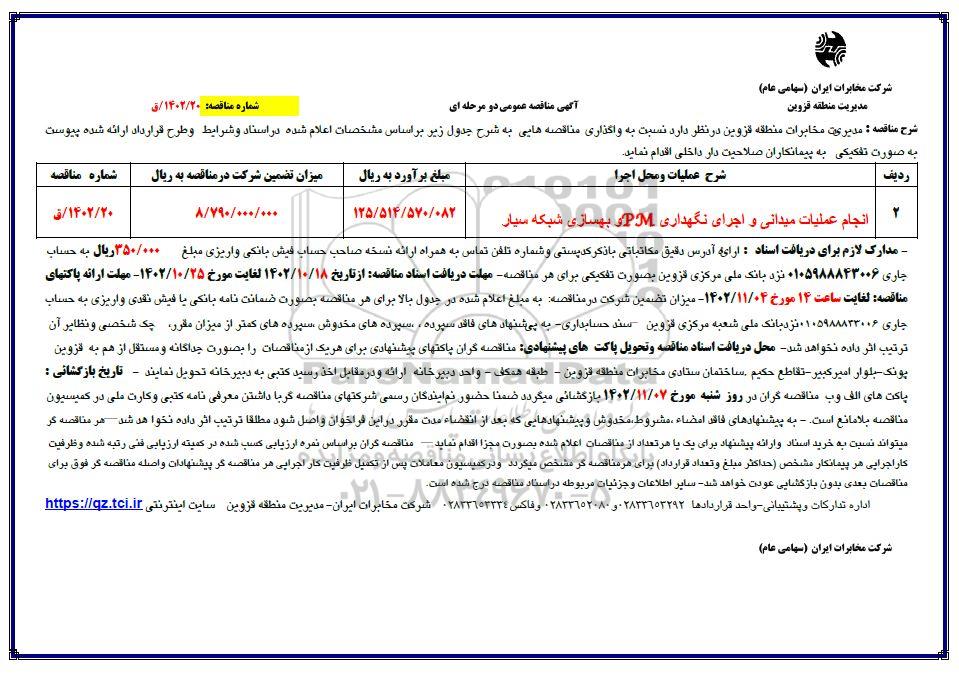 شرکت مخابرات ایران (سهامی عام)
مدیریت منطقه قزوین
آگهی مناقصه عمومی دو مرحله ای
شماره مناقصه: ۱۴۰۲/۲۰/ق
شرح مناقصه : مدیریت مخابرات منطقه قزوین درنظر دارد نسبت به واگذاری مناقصه هایی به شرح جدول زیر براساس مشخصات اعلام شده دراسناد وشرایط وطرح قرارداد ارائه شده پیوست
به صورت تفکیکی به پیمانکاران صلاحیت دار داخلی اقدام نماید.
ردیف شرح عملیات ومحل اجرا مبلغ برآورد به ریال میزان تضمین شرکت درمناقصه به ریال شماره مناقصه
۲ انجام عملیات میدانی و اجرای نگهداری PM و بهسازی شبکه سیار ۱۲۵/۵۱۴/۵۷۰/۰۸۲ ۸/۷۹۰/۰۰۰/۰۰۰ ۱۴۰۲/۲۰/ق
- مدارک لازم برای دریافت اسناد : ارائه آدرس دقیق مکاتباتی باذکرکدپستی وشماره تلفن تماس به همراه ارائه نسخه صاحب حساب فیش بانکی واریزی مبلغ ۳۵۰/۰۰۰ریال به حساب
جاری ۰۱۰۵۹۸۸۸۴۳۰۰۶ نزد بانک ملی مرکزی قزوین بصورت تفکیکی برای هر مناقصه- مهلت دریافت اسناد مناقصه: ازتاریخ ۱۴۰۲/۱۰/۱۸ لغایت مورخ ۱۴۰۲/۱۰/۲۵- مهلت ارائه پاکتهای
مناقصه: لغایت ساعت ۱۴ مورخ ۱۴۰۲/۱۱/۰۴- میزان تضمین شرکت درمناقصه: به مبلغ اعلام شده در جدول بالا برای هر مناقصه بصورت ضمانت نامه بانکی یا فیش نقدی واریزی به حساب
جاری ۰۱۰۵۹۸۸۸۳۳۰۰۶نزدبانک ملی شعبه مرکزی قزوین –سند حسابداری- به پیشنهاد های فاقد سپرده ، ،سپرده های مخدوش ،سپرده های کمتر از میزان مقرر، چک شخصی ونظایر آن
ترتیب اثر داده نخواهد شد- محل دریافت اسناد مناقصه وتحویل پاکت های پیشنهادی: مناقصه گران پاکتهای پیشنهادی برای هریک ازمناقصات را بصورت جداگانه ومستقل از هم به قزوین
پونک-بلوار امیرکبیر-تقاطع حکیم ،ساختمان ستادی مخابرات منطقه قزوین - طبقه همکف - واحد دبیرخانه ارائه ودرمقابل اخذ رسید کتبی به دبیرخانه تحویل نمایند - تاریخ بازگشائی :
پاکت های الف وب مناقصه گران در روز شنبه مورخ ۱۴۰۲/۱۱/۰۷ بازگشائی میگردد ضمنا حضور نمایندگان رسمی شرکتهای مناقصه گربا داشتن معرفی نامه کتبی وکارت ملی در کمیسیون
مناقصه بلامانع است. - به پیشنهادهای فاقد امضاء ،مشروط،مخدوش وپیشنهادهایی که بعد از انقضاء مدت مقرر دراین فراخوان واصل شود مطلقا ترتیب اثر داده نخواهد شد—هر مناقصه گر
میتواند نسبت به خرید اسناد وارائه پیشنهاد برای یک یا هرتعداد از مناقصات اعلام شده بصورت مجزا اقدام نماید— مناقصه گران براساس نمره ارزیابی کسب شده در کمیته ارزیابی فنی رتبه شده وظرفیت
کاراجرایی هر پیمانکار مشخص (حداکثر مبلغ وتعداد قرارداد) برای هرمناقصه گر مشخص میگردد ودرکمیسیون معاملات پس از تکمیل ظرفیت کار اجرایی هر مناقصه گر پیشنهادات واصله مناقصه گر فوق برای
مناقصات بعدی بدون بازگشایی عودت خواهد شد- سایر اطلاعات وجزئیات مربوطه دراسناد مناقصه درج شده است.
اداره تدارکات وپشتیبانی-واحد قراردادها ۰۲۸۳۳۶۵۳۲۹۲و ۰۲۸۳۳۶۵۲۰۸۰ وفاکس ۰۲۸۳۳۶۵۳۳۳۴ شرکت مخابرات ایران- مدیریت منطقه قزوین سایت اینترنتی https://qz.tci.ir
شرکت مخابرات ایران (سهامی عام)
ParsNamadData
پایگاه اطلاع رسانی مناقصه و مزایده
۰۲۱-۸۸۳۴۹۶۷۰-۵